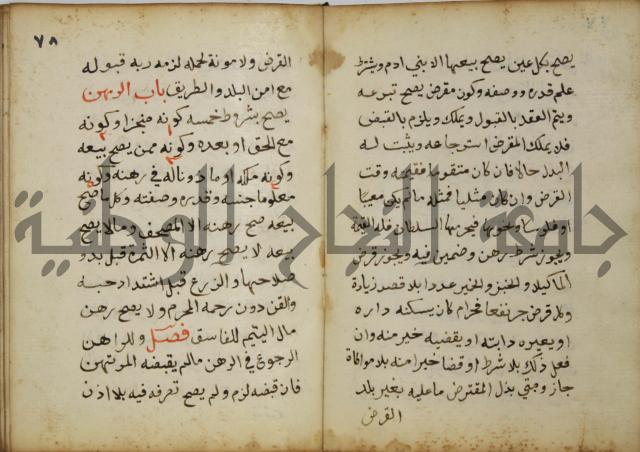 يصح بكل عين يصح بيعها الا بني ادم ويشترط
علم قدره ووصفه وكون مقرض يصح تبرعه
ويتم العقد بالقبول ويملك ويلزم بالقبض
فلا يملك المقرض استرجاعه ويثبت له
البدل حالا فان كان متقوما فقيمته وقت
القرض وان كان مثليا فمثله ما لم يكن معيبا
او فلوسا ونحوها فيحرمها السلطان فله القيمة
ويجوز شرط رهن وضمين فيه ويجوز قرض
الماء كيلا والخبز والخمير عددا بلا قصد زيادة
وكل قرض جر نفعا فحرام كان يسكنه داره
او يعيره دابته او يقضيه خيرا منه وان
فعل ذلك بلا شرط او قضا خيرا منه بلا مواطاة
جاز ومتى بذل المقترض ما عليه بغير بلد
القرض
٧٨
القرض ولا مونة لحمله لزم ربه قبوله
مع امن البلد والطريق باب الرهن
يصح بشروط خمسة كونه منجزا وكونه
مع الحق او بعده وكونه ممن يصح بيعه
وكونه ملكه او ماذونا له في رهنه وكونه
معلوما جنسه وقدره وصفته وكل ما صح
بيعه صح رهنه الا المصحف وما لا يصح
بيعه لا يصح رهنه الا الثمرة قبل بدو
صلاحها والزرع قبل اشتداد حبه
والقن دون رحمه المحرم ولا يصح رهن
مال اليتيم للفاسق فصل وللراهن
الرجوع في الرهن ما لم يقبضه المرتهن
فان قبضه لزم ولم يصح تصرفه فيه بلا اذن
جامعة النجاح الوطنية